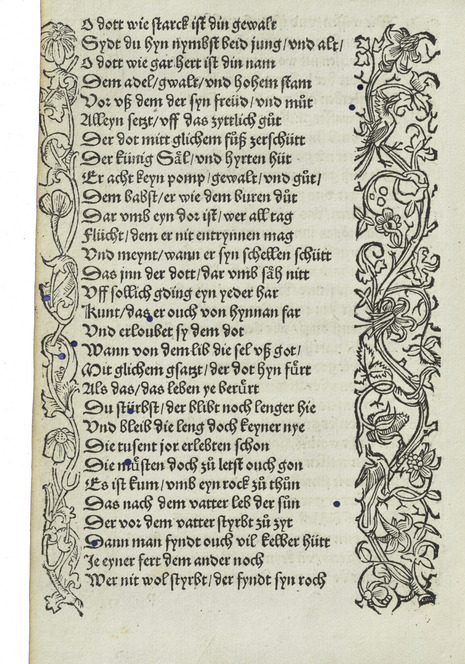 O dott wie starck ist din gewalt
Sydt du hyn nymbst beid jung/vnd alt/
O dott wie gar hert ist din nam
Dem adel/gwalt/vnd hohem stam
Vor vß dem der syn freüd/vnd müt
Alleyn setzt/vff das zyttlich güt
Der dot mitt glichem füß zerschütt
Der künig Säl/vnd hyrten hüt
Er acht keyn pomp/gewalt/vnd güt/
Dem babst/er wie dem buren düt
Dar vmb eyn dor ist/wer all tag
Flücht/dem er nit entrynnen mag
Vnd meynt/wann er syn schellen schütt
Das jnn der dott/dar vmb säh nitt
Vff sollich gding eyn yeder har
Kunt/das er ouch von hynnan far
Vnd erloubet sy dem dot
Wann von dem lib die sel vß got/
Mit glichem gsatzt/der dot hyn fürt
Als das/das leben ye berürt
Du stürbst/der blibt noch lenger hie
Vnd bleib die leng doch keyner nye
Die tusent jor erlebten schon
Die müsten doch zü letst ouch gon
Es ist kum/vmb eyn rock zü thün
Das nach dem vatter leb der sün
Der vor dem vatter styrbt zü zyt
Dann man fyndt ouch vil kelber hütt
Je eyner fert dem ander noch
Wer nit wol styrbt/der fyndt syn roch